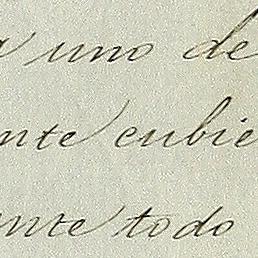 a uno de
nte cubie
nte todo